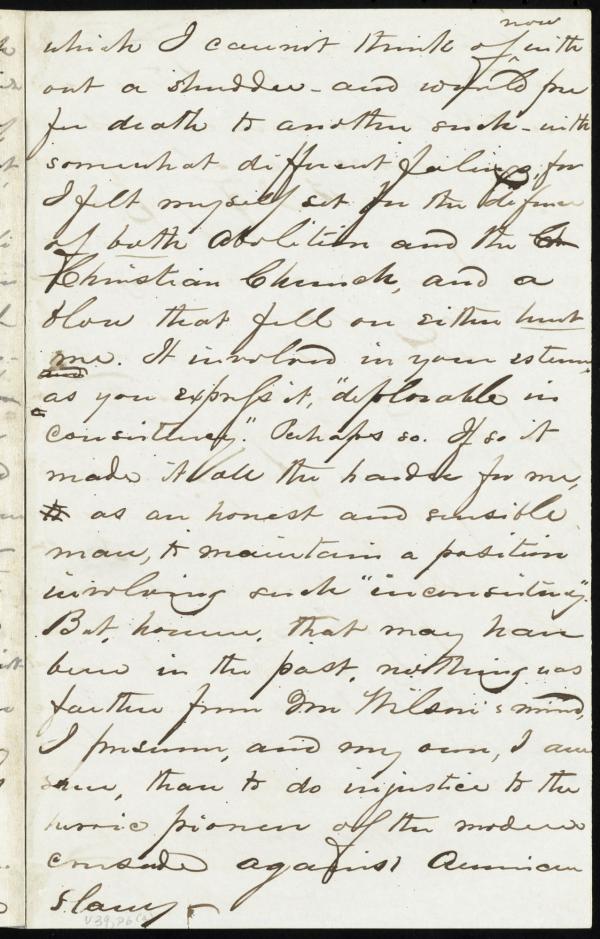 now
which I cannot think of with
out a shudder - and would pre
fer death to another such - with
somewhat different feelings, for
I felt myself set for the defence
of both Abolition and the Ch
Christian Church, and a
blow that fell on either hurt
me. It involved in your esteem,
and
as you express it, "deplorable in
consistency". Perhaps so. If so it
made it all the harder for me,
as an honest and sensible
man, to maintain a position
involving such "inconsistency".
But, however, that may have
been in the past, nothing was
farther from Mr Wilson's mind,
I presume, and my own, I am
sure, than to do injustice to the
heroic pioneer of the modern
crusade against American
Slavery -
v.39, p6(a)